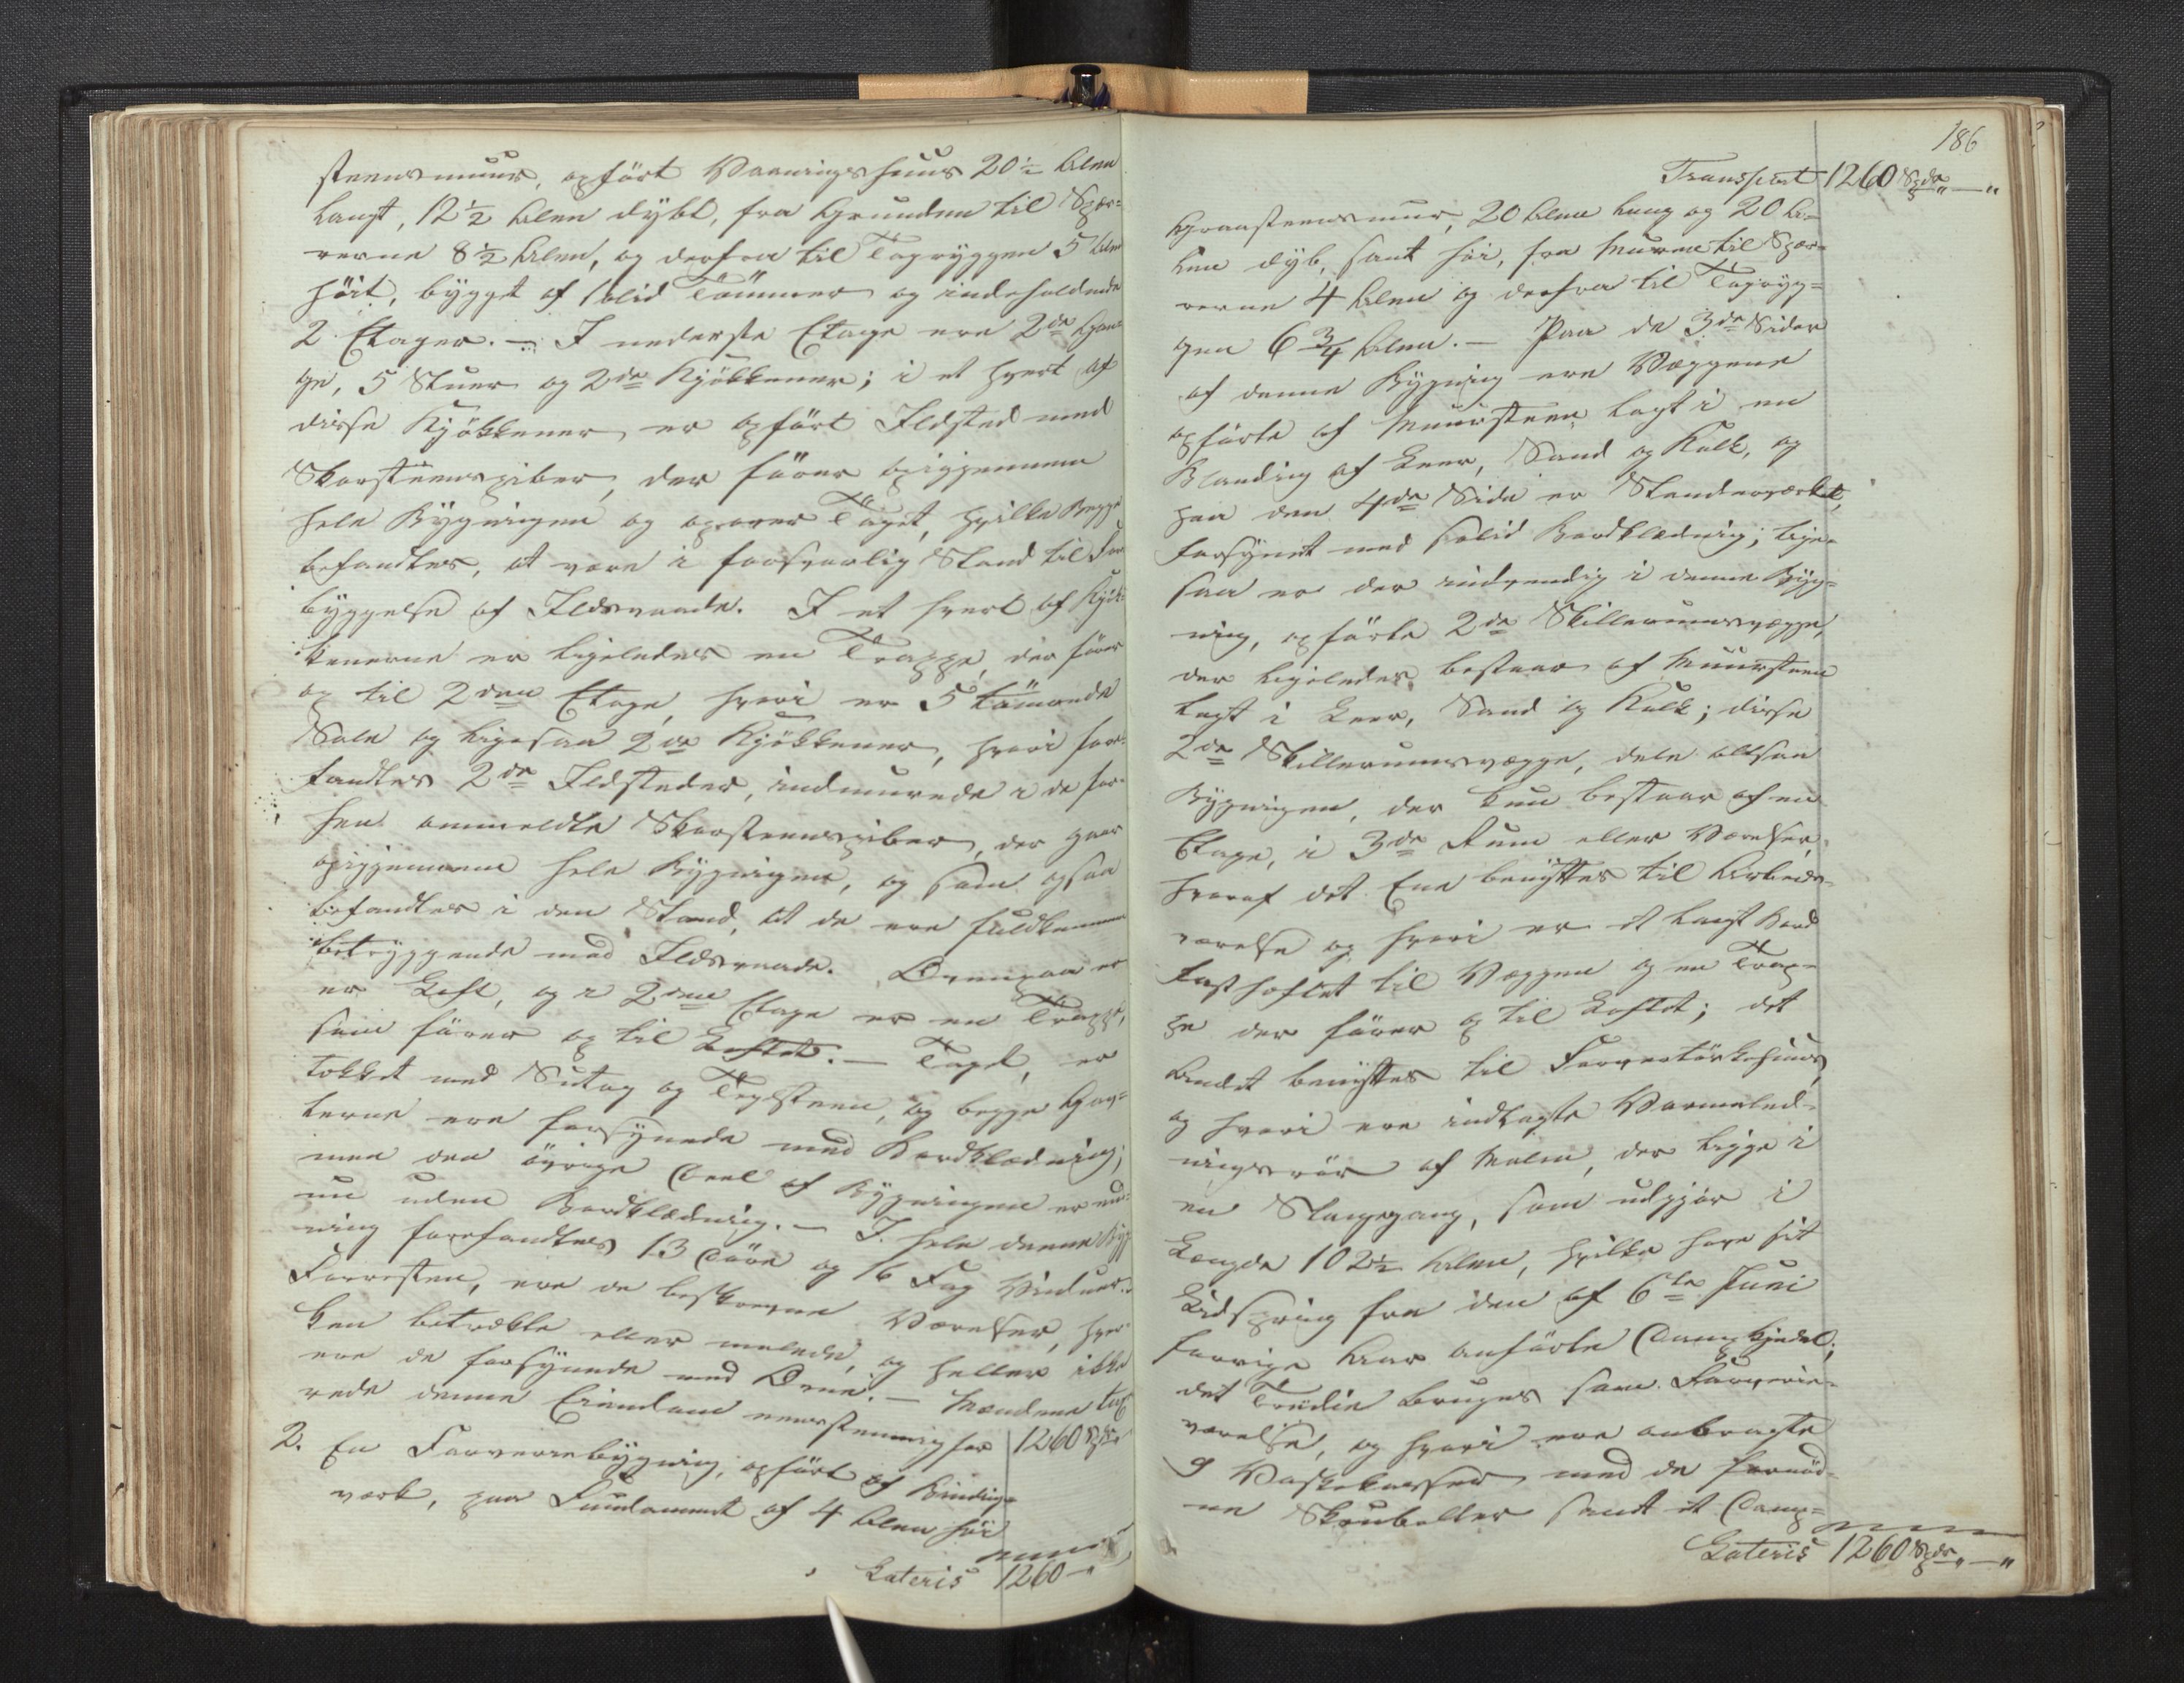 steensmuur, opført Vaaningshuus 20½ Alen
langt, 12½ Alen dybt, fra Grunden til Spær-
rerne 8½ Alen, og derfra til Tagryggen 5 Alen
høit, bygget af solid Tømmer og indeholdende
2 Etager. – I nederste Etage ere 2de Gan-
ge, 5 Stuer og 2de Kjøkkener; i et hvert af
disse Kjøkkener er opført Ildsted med
Skorsteenspiber, der fører opigjennem
hele Bygningen og opover Taget, hvilke Begge
befandtes, at være i forsvarlig Stand til For-
byggelse af Ildsvaade. I et hvert af Kjök-
kenerne er ligeledes en Trappe, der fører
op til 2den Etage, hvori er 5 tømrede
Sale og ligesaa 2de Kjøkkener, hvori fore-
fandtes 2de Ildsteder, indmurede i de for-
hen anmeldte Skorsteenspiber, der gaar
opigjennem hele Bygningen, og som ogsaa
befandtes i den Stand, at de ere fuldkommen
betryggende mod Ildsvaade. Ovenpaa er
er Loft, og i 2den Etage er en Trappe,
som fører op til Loftet. – Taget, er
tækket med Sutag og Teglsteen, og begge Gav-
lerne ere forsynede med Bordklædning;
men den øvrige Deel af Bygningen er end-
nu uden Bordklædning. – I hele denne Byg-
ning forefandtes 13 Døre og 16 Fag Vinduer.
Forresten, ere de beskrevne Værelser, hver-
ken betrækte eller malede, og heller ikke
ere de forsynede med Ovne. – Mændene tax-
erede denne Eiendom eenstemmig for 1260 Spdr
2. En Farveriebygning, opført af Bindings-
værk, paa Fundament af 4 Alen høi
Lateris 1260 – "
186
Transport 1260 Spdr " – "
Graasteensmur, 20 Alen lang og 20 A-
len dyb, samt høi, fra Muren til Spær-
rerne 4 Alen og derfra til Tagryg-
gen 6¾ Alen. – Paa de 3de Sider
af denne Bygning ere Væggene
opførte af Muursteen lagt i en
Blanding af Leer, Sand og Kalk, og
paa den 4de Side er Stenderværket,
forsynet med solid Bordklædning; lige-
saa er der indvendig i denne Byg-
ning, opførte 2de Skillerumsvægge,
der ligeledes bestaar af Muursteen
lagt i Leer, Sand og Kalk; disse
2de Skillerumsvægge, dele altsaa
Bygningen, der kun bestaar af en
Etage, i 3de Rum eller Værelser,
hvoraf det Ene benyttes til Arbeids-
værelse og hvori er et langt Bord
fast hæftet til Væggen og en Trap-
pe der fører op til Loftet; det
Andet benyttes til Farvertörkehuus,
og hvori ere indlagte Varmeled-
ningsrör af Malm, der ligge i
en Slangegang, som udgjør i
Længde 102½ Alen, hvilke have sit
Udspring fra den af 6te Juni
forrige Aar anførte Dampkjedel;
det Tredie bruges som Farverie-
værelse, og hvori ere anbragte
9 Vaskekasser med de fornød-
ne Skruballer samt et Damp-
Lateris 1260 Spdr " – "